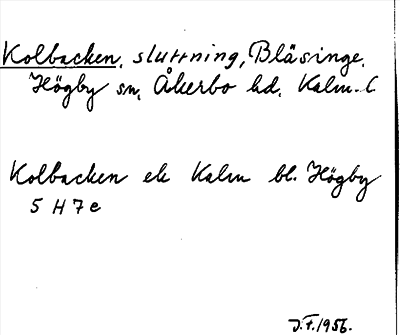 Kolbacken, sluttning, Bläsinge,
Högby sn, Åkerbo hd, Kalm. l
Kolbacken ek Kalm bl. Högby
5 H 7 e
J.F. 1956.